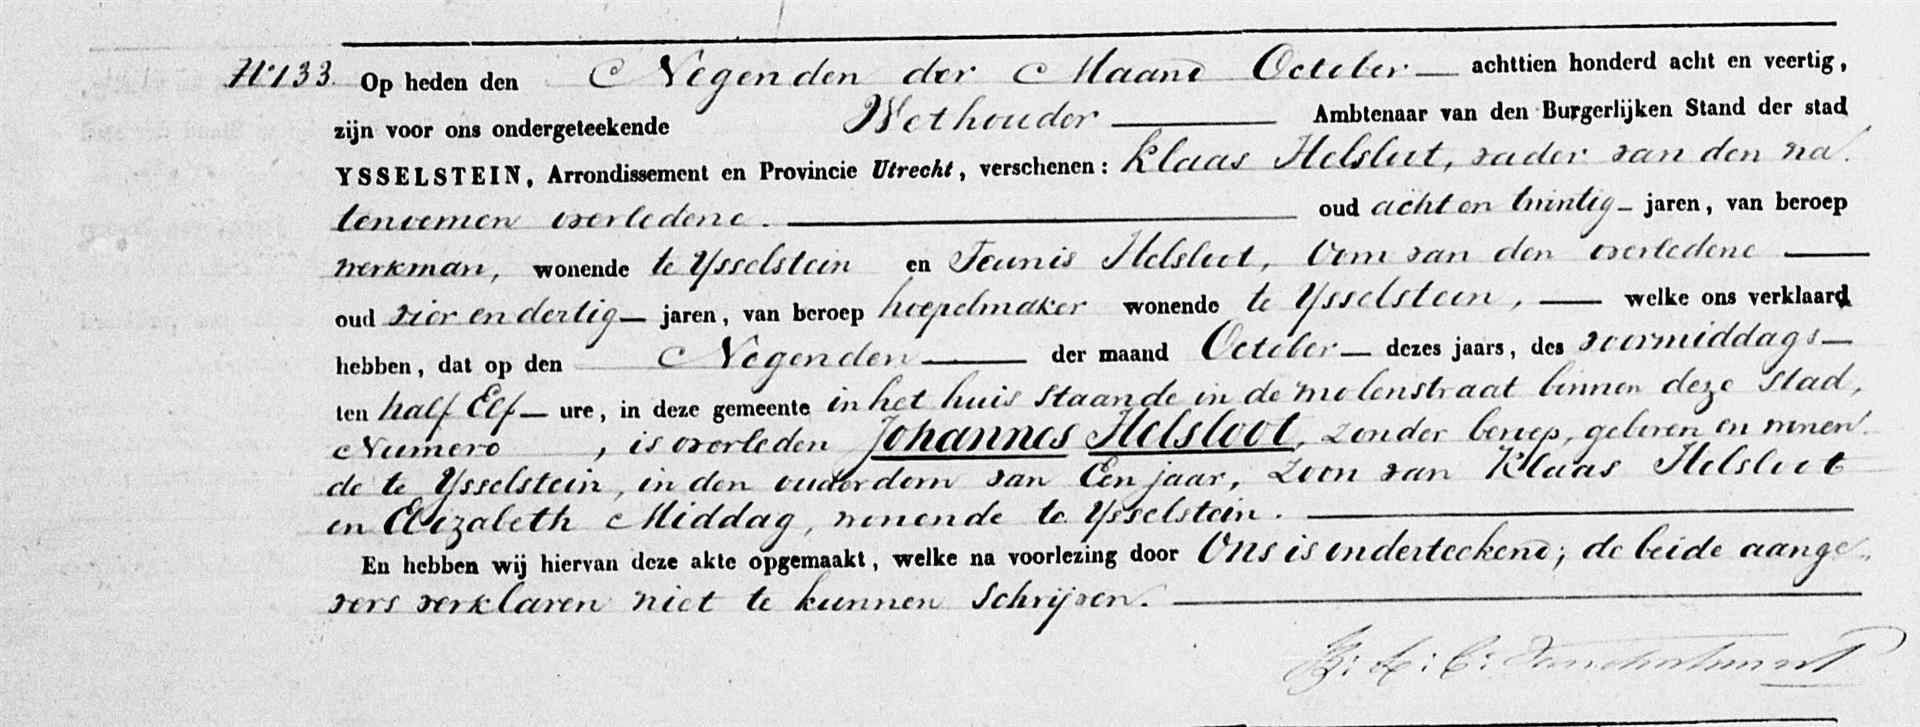 No 133. Op heden den Negenden der Maand October achttien honderd acht en veertig,
zijn voor ons ondergeteekende Wethouder Ambtenaar van den Burgerlijken Stand der stad
YSSELSTEIN, Arrondissement en Provincie Utrecht, verschenen: Klaas Helsloot, vader van den na
tenoemen overledene. oud acht en twintig jaren, van beroep
werkman, wonende te Ysselstein en Teunis Helsloot, Oom van den overledene
oud vier en dertig jaren, van beroep hoepelmaker wonende te Ysselstein, welke ons verklaard
hebben, dat op den Negenden der maand October dezes jaars, des voormiddags
ten half Elf ure, in deze gemeente in het huis staande in de molenstraat binnen deze stad,
Numero , is overleden Johannes Helsloot, zonder beroep, geboren en wonen
de te Ysselstein, in den ouderdom van Een jaar, zoon van Klaas Helsloot
en Elizabeth Middag, wonende te Ysselstein.
En hebben wij hiervan deze akte opgemaakt, welke na voorlezing door Ons is onderteekend; de beide aange
vers verklaren niet te kunnen schrijven.